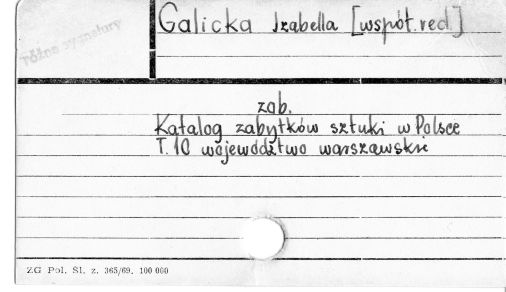 Galicka Izabella [współ. red.]
różne sygnatury
zob.
Katalog zabytków sztuki w Polsce
T. 10 województwo warszawskie
ZG Pol. Śl. z. 365/69. 100 000